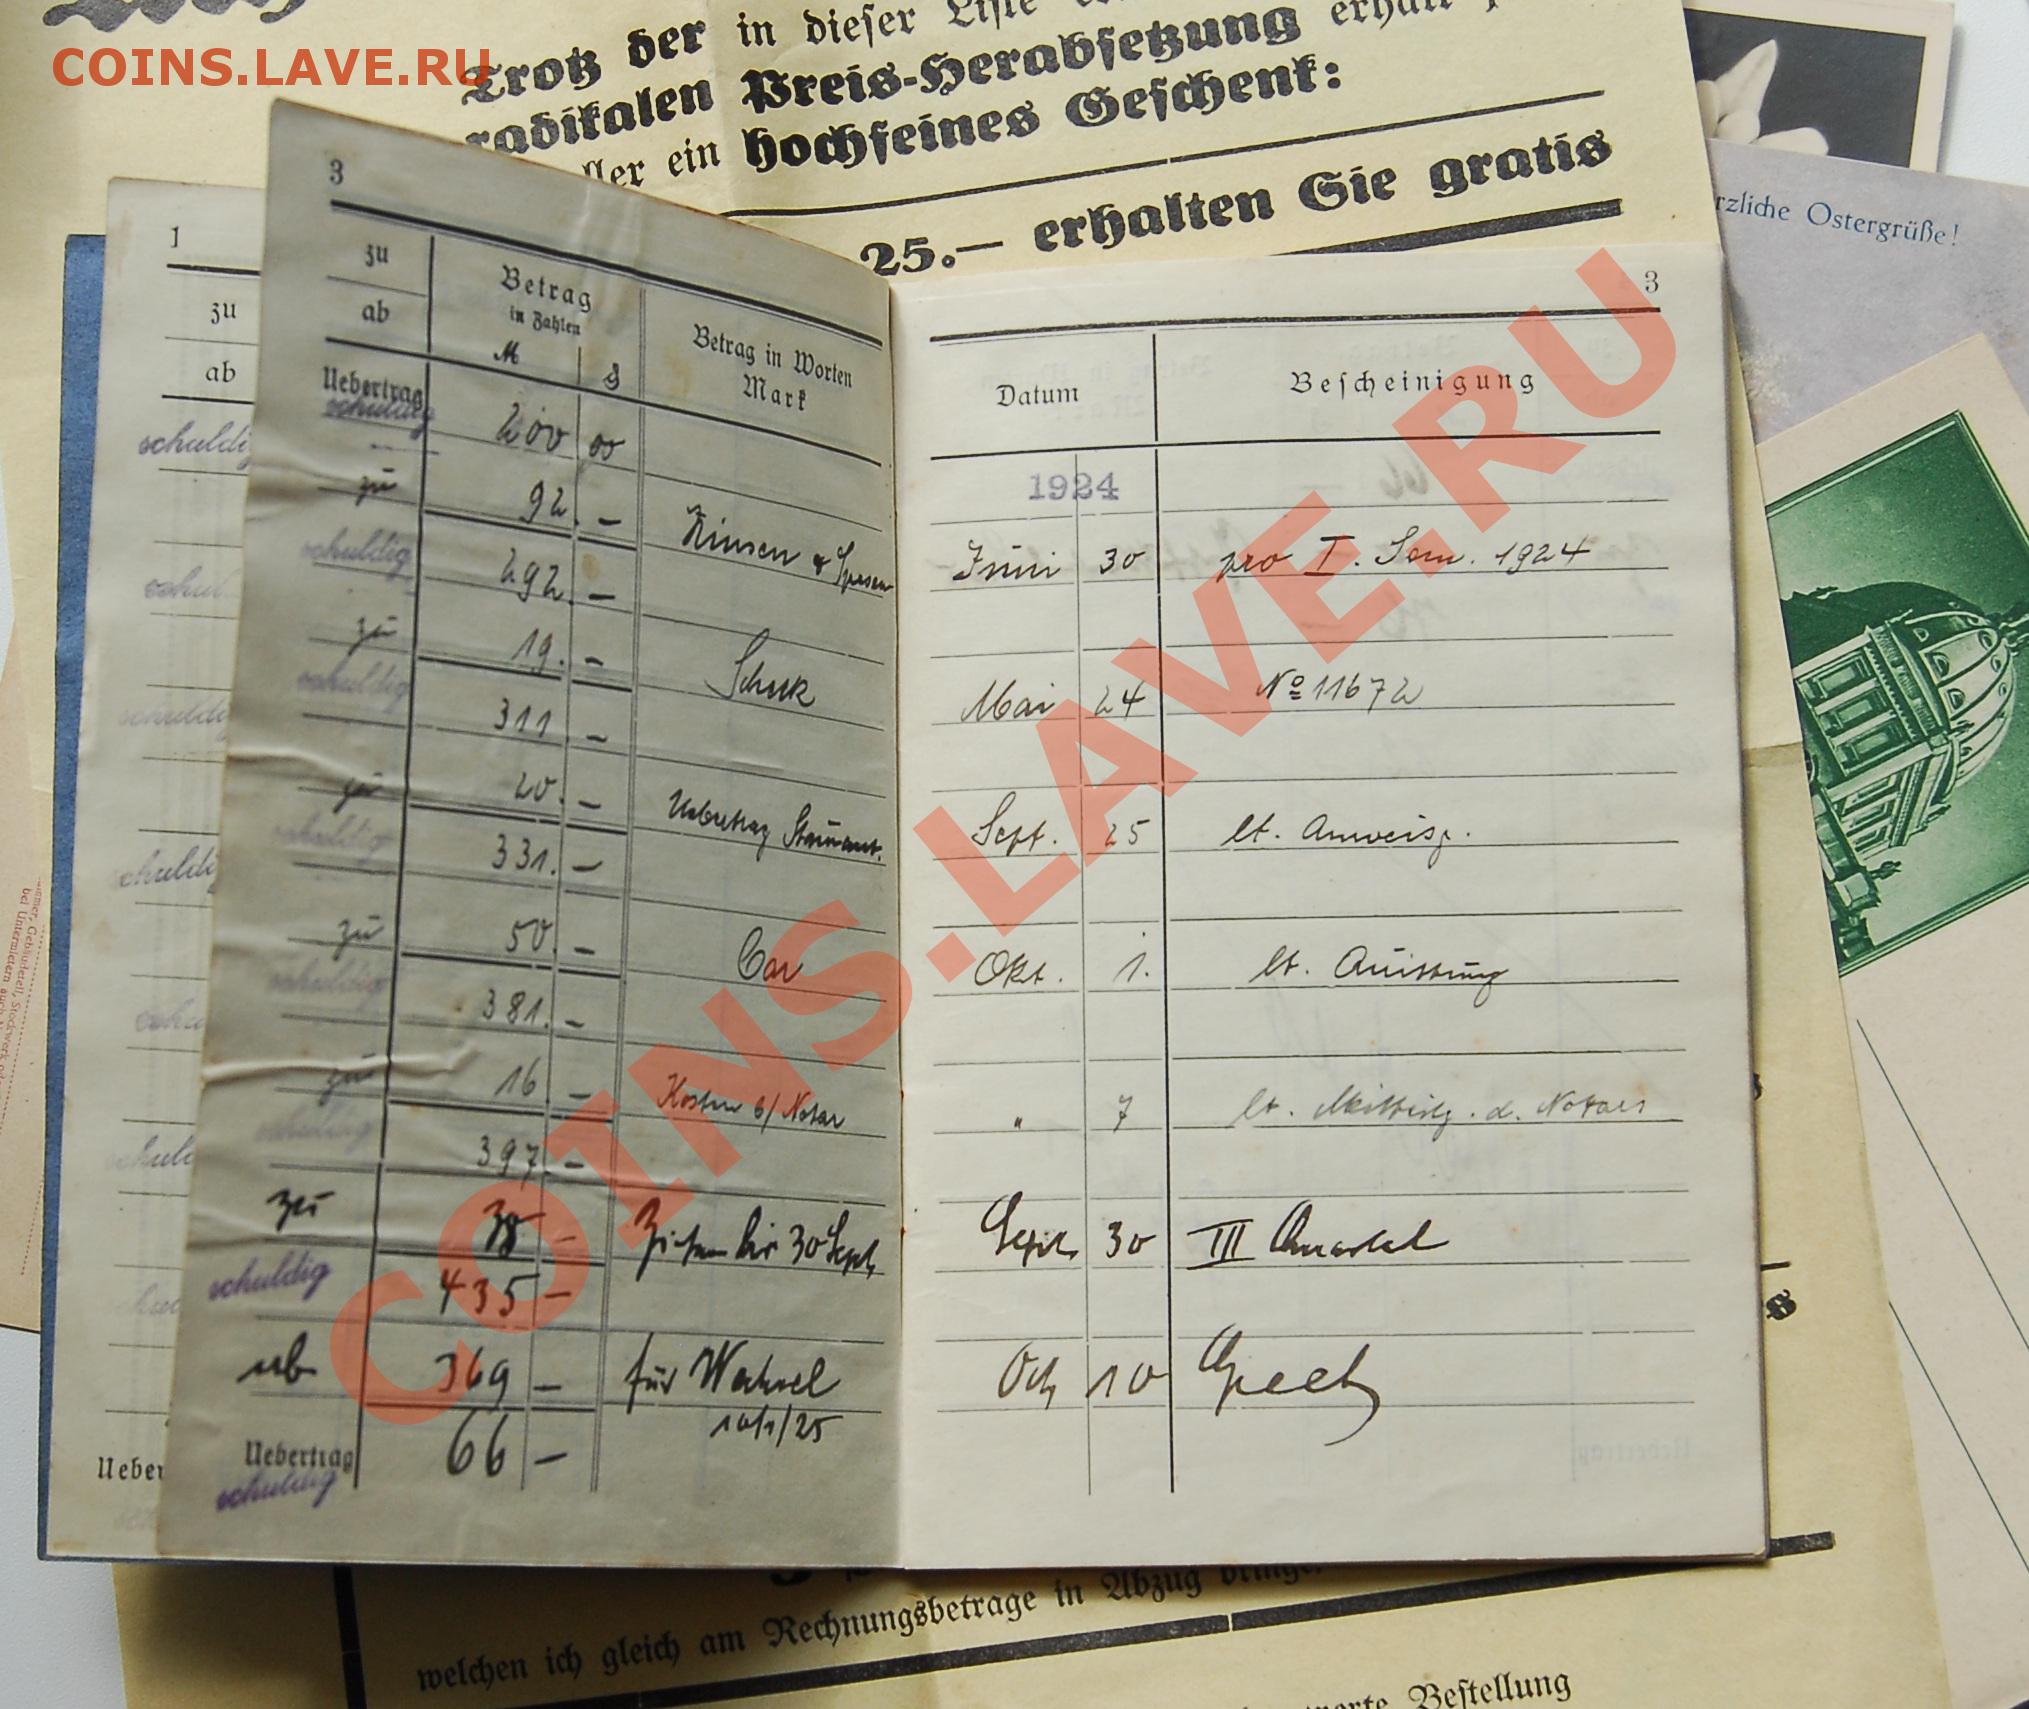 COINS.LAVE.RU
Trotz der in dieser Liste
radikalen Preis-Herabsetzung erhält
ein hochfeines Geschenk:
25.— erhalten Sie gratis
rzliche Ostergrüße!
1
zu
ab
schuldig
schuldig
schuldig
3
zu
ab
Betrag
in Zahlen
M
₰
Betrag in Worten
Mark
Uebertrag
schuldig
200 00
zu 92. — Zinsen & Spesen
schuldig 292. —
zu 19. — Scheck
schuldig 311 —
zu 20. — Uebertrag
schuldig 331. —
zu 50. — Bar
schuldig 381. —
zu 16 — Kosten b/ Notar
schuldig 397. —
zu 38 — Zinsen bis 30 Sept.
schuldig 435 —
ab 369 — für Wechsel
10/1/25
Uebertrag 66 —
schuldig
3
Datum
Bescheinigung
1924
Juni 30 pro I. Sem. 1924
Mai 24 Nº 11672
Sept. 25 lt. Anweisg.
Okt. 1. lt. Quittung
" 7 lt. Mitteilg. d. Notars
Sept. 30 III Quartal
Oct 10
COINS.LAVE.RU
welchen ich gleich am Rechnungsbetrage in Abzug bringe
Bestellung